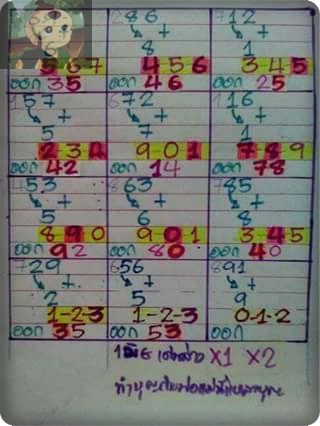 286 712
+ +
6 8 1
567 456 345
ออก 35 ออก 46 ออก 25
157 672 116
+ + +
5 7 1
234 901 789
ออก 42 ออก 14 ออก 78
453 863 785
+ + +
5 6 8
890 901 345
ออก 92 ออก 80 ออก 40
729 656 891
+ + +
2 5 9
1-2-3 1-2-3 0-1-2
ออก 35 ออก 53 ออก
x1 x2